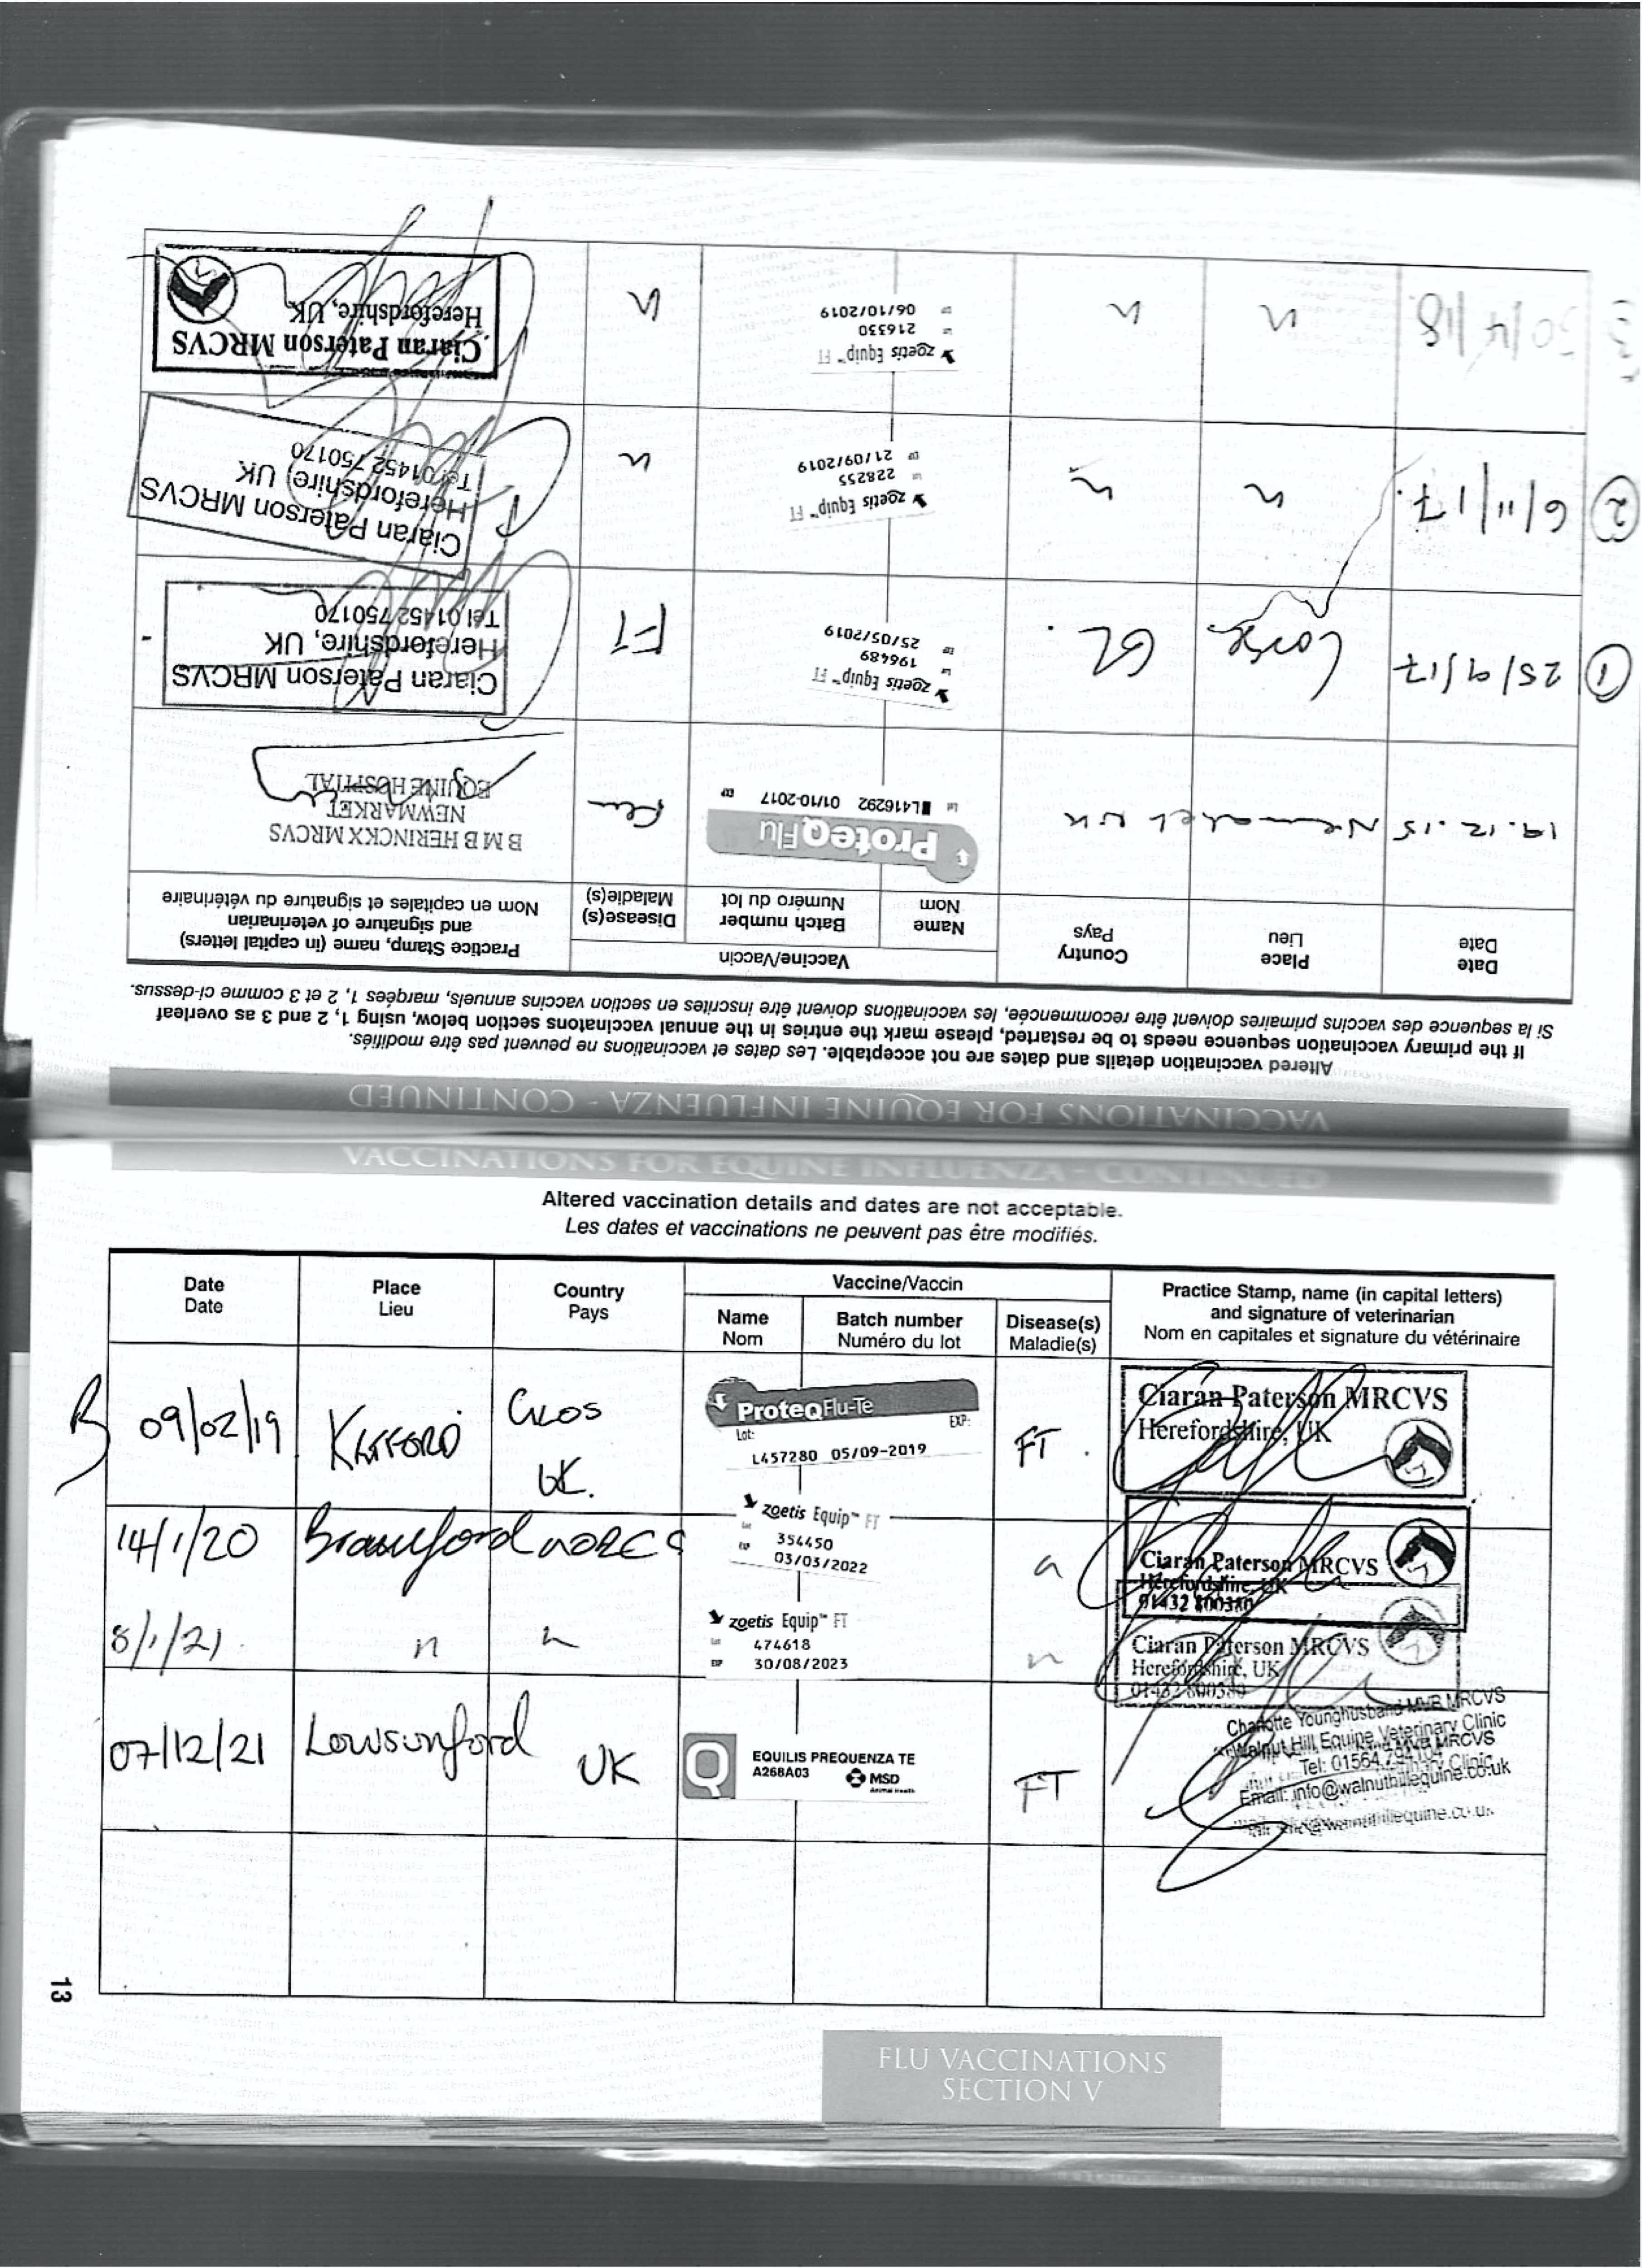 VACCINATIONS FOR EQUINE INFLUENZA - CONTINUED
Altered vaccination details and dates are not acceptable. Les dates et vaccinations ne peuvent pas être modifiés.
If the primary vaccination sequence needs to be restarted, please mark the entries in the annual vaccinatons section below, using 1, 2 and 3 as overleaf
Si la sequence des vaccins primaires doivent être recommencée, les vaccinations doivent être inscrites en section vaccins annuels, marqées 1, 2 et 3 comme ci-dessus.
Date
Date
Place
Lieu
Country
Pays
Vaccine/Vaccin
Name
Nom
Batch number
Numéro du lot
Disease(s)
Maladie(s)
Practice Stamp, name (in capital letters)
and signature of veterinarian
Nom en capitales et signature du vétérinaire
19.12.15 Newmarket UK
ProteqFlu
Lot L416292 01/10-2017 EXP
Flu
B M B HERINCKX MRCVS
NEWMARKET
EQUINE HOSPITAL
1 25/9/17
GL.
zoetis Equip™ FT
196489
25/05/2019
FT
Ciaran Paterson MRCVS
Herefordshire, UK
Tel 01452 750170
2 6/11/17.
"
"
zoetis Equip™ FT
228255
21/09/2019
"
Ciaran Paterson MRCVS
Herefordshire, UK
Tel 01452 750170
3 30/4/18.
"
"
zoetis Equip™ FT
216330
06/10/2019
"
Ciaran Paterson MRCVS
Herefordshire, UK
VACCINATIONS FOR EQUINE INFLUENZA - CONTINUED
Altered vaccination details and dates are not acceptable.
Les dates et vaccinations ne peuvent pas être modifiés.
Date
Date
Place
Lieu
Country
Pays
Vaccine/Vaccin
Name
Nom
Batch number
Numéro du lot
Disease(s)
Maladie(s)
Practice Stamp, name (in capital letters)
and signature of veterinarian
Nom en capitales et signature du vétérinaire
B 09/02/19
GLOS
UK.
ProteqFlu-Te
Lot: EXP:
L457280 05/09-2019
FT.
Ciaran Paterson MRCVS
Herefordshire, UK
14/1/20
WORCS
zoetis Equip™ FT
Lot 354450
EXP 03/03/2022
"
Ciaran Paterson MRCVS
Herefordshire, UK
01432 800380
8/1/21.
"
"
zoetis Equip™ FT
Lot 474618
EXP 30/08/2023
"
Ciaran Paterson MRCVS
Herefordshire, UK
01432 800380
07/12/21
Lowsonford
UK
Q
EQUILIS PREQUENZA TE
A268A03
MSD
Animal Health
FT
Charlotte Younghusband MVB MRCVS
Walnut Hill Equine Veterinary Clinic
Tel: 01564 794104
Email: info@walnuthillequine.co.uk
13
FLU VACCINATIONS
SECTION V